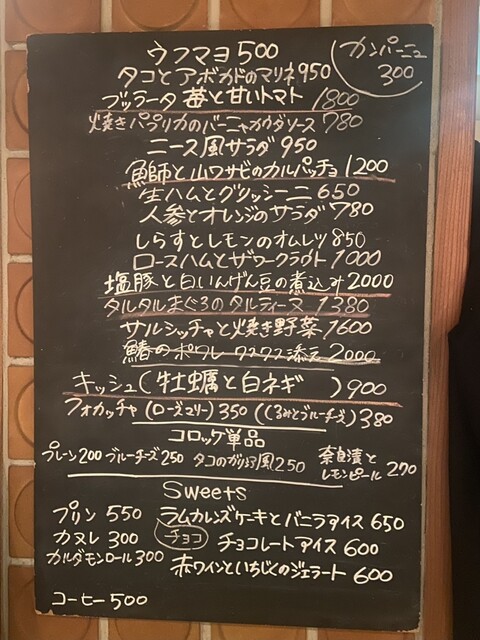 ウフマヨ 500
カンパーニュ
300
タコとアボカドのマリネ 950
ブッラータ 苺と甘いトマト 1800
焼きパプリカのバーニャカウダソース 780
ニース風サラダ 950
鰤師と山ワサビのカルパッチョ 1200
生ハムとグリッシーニ 650
人参とオレンジのサラダ 780
しらすとレモンのオムレツ 850
ロースハムとザワークラウト 1000
塩豚と白いんげん豆の煮込み 2000
タルタルまぐろのタルティーヌ 1380
サルシッチャと焼き野菜 1600
鰆のポワレ クスクス添え 2000
キッシュ(牡蠣と白ネギ )900
フォカッチャ (ローズマリー) 350 (くるみとブルーチーズ) 380
コロッケ単品
プレーン 200 ブルーチーズ 250 タコのガリシア風 250 奈良漬とレモンピール 270
Sweets
プリン 550 ラムカレンズケーキとバニラアイス 650
カヌレ 300 チョコ チョコレートアイス 600
カルダモンロール 300 赤ワインといちじくのジェラート 600
コーヒー 500